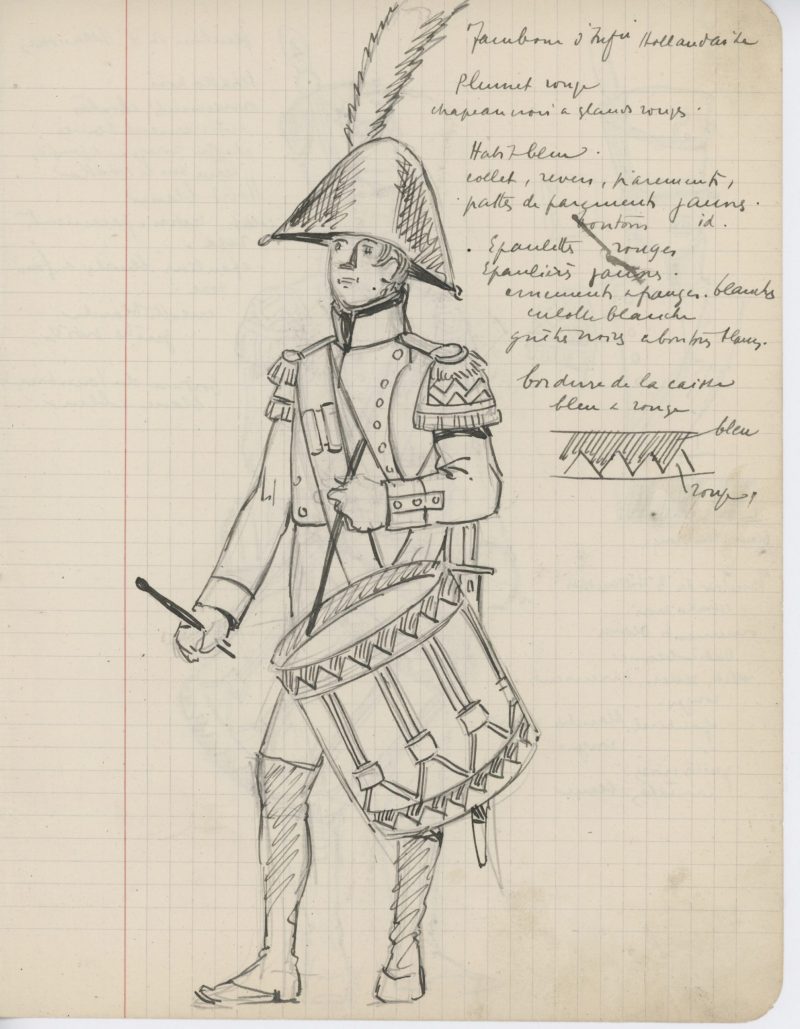 Tambour d'Infie Hollandaise
Plumet rouge
chapeau noir a glands rouges.
Habit bleu.
collet, revers, parements,
pattes de parements jaunes.
boutons id.
Epaulettes rouges
Epauliers jaunes.
ornements a franges. blanches
culotte blanche
guêtres noires a boutons blancs.
bordure de la caisse
bleu a rouge
bleu
rouge